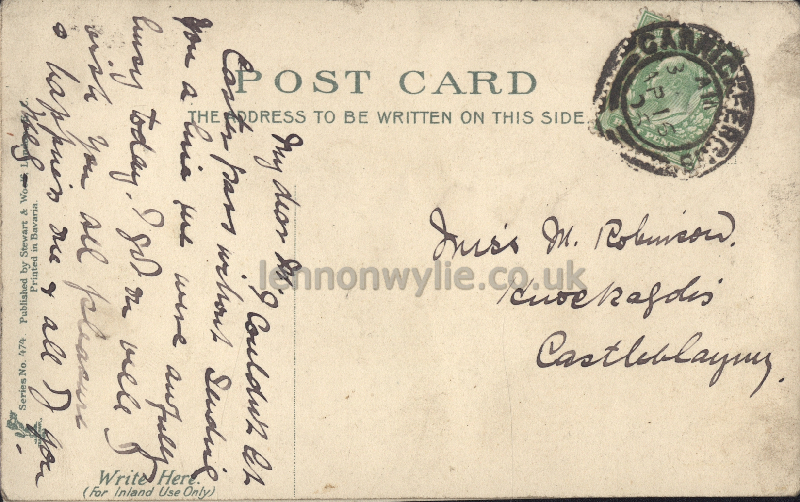 POST CARD
THE ADDRESS TO BE WRITTEN ON THIS SIDE.
CARRICKFERGUS
3 AM
AP 16
06
My dear M.
I Couldn't let
Easter pass without sending
You a line we were awfully
busy today. I got on well I
wish you all pleasure
& happiness one & all of you
Miss M. Robinson.
Knockagolis
Castleblayney.
lennonwylie.co.uk
Write Here.
(For Inland Use Only)
Series No. 474. Published by Stewart & Woolf, London
Printed in Bavaria.